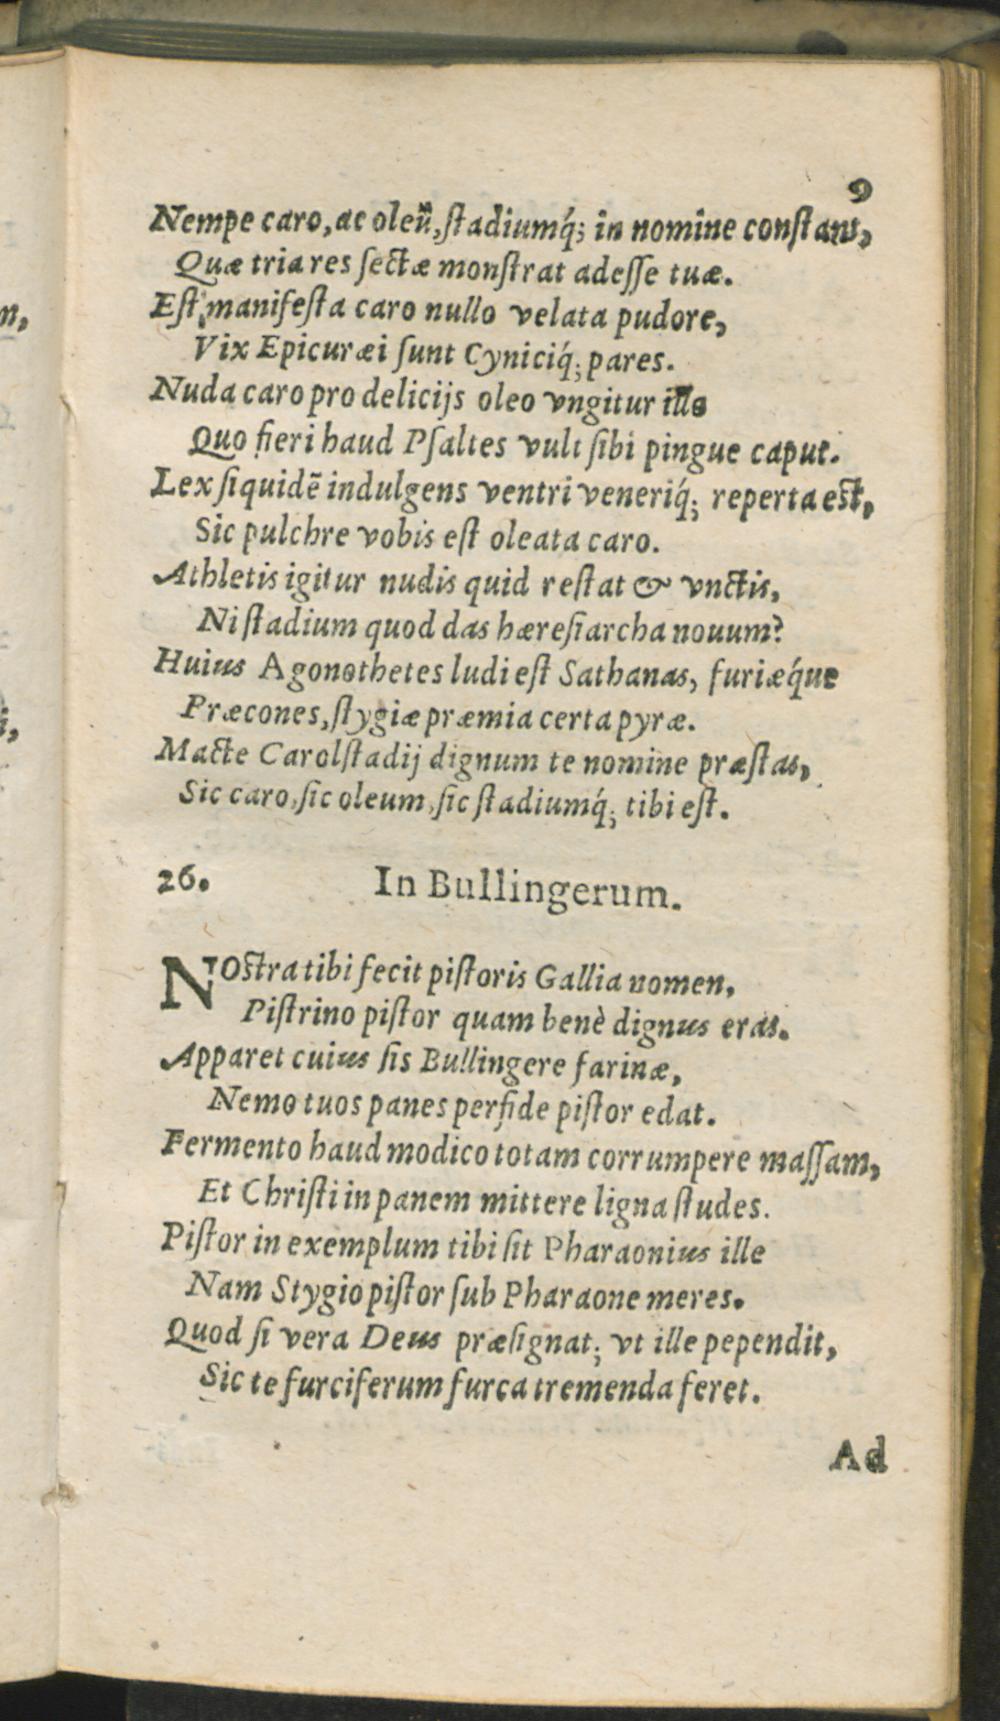 9
Nempe caro, ac oleũ, ſtadiumq́; in nomine conſtant,
Quæ tria res ſectæ monſtrat adeſſe tuæ.
Eſt manifeſta caro nullo velata pudore,
Vix Epicuræi ſunt Cyniciq́; pares.
Nuda caro pro delicijs oleo vngitur illo
Quo fieri haud Pſaltes vult ſibi pingue caput.
Lex ſiquidē indulgens ventri veneriq́; reperta eſt,
Sic pulchre vobis eſt oleata caro.
Athletis igitur nudis quid reſtat & vnctis,
Ni ſtadium quod das hæreſiarcha nouum?
Huius Agonothetes ludi eſt Sathanas, furiæq́ue
Præcones, ſtygiæ præmia certa pyræ.
Macte Carolſtadij dignum te nomine præſtas,
Sic caro, ſic oleum, ſic ſtadiumq́; tibi eſt.
26. In Bullingerum.
NOſtra tibi fecit piſtoris Gallia nomen,
Piſtrino piſtor quam benè dignus eras.
Apparet cuius ſis Bullingere farinæ,
Nemo tuos panes perfide piſtor edat.
Fermento haud modico totam corrumpere maſſam,
Et Chriſti in panem mittere ligna ſtudes.
Piſtor in exemplum tibi ſit Pharaonius ille
Nam Stygio piſtor ſub Pharaone meres.
Quod ſi vera Deus præſignat; vt ille pependit,
Sic te furciferum furca tremenda feret.
Ad